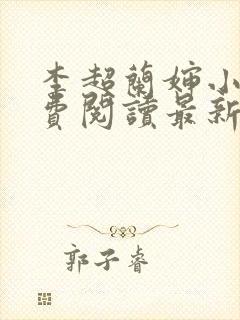 李超蘭嬸小
費閱讀最新
郭子睿